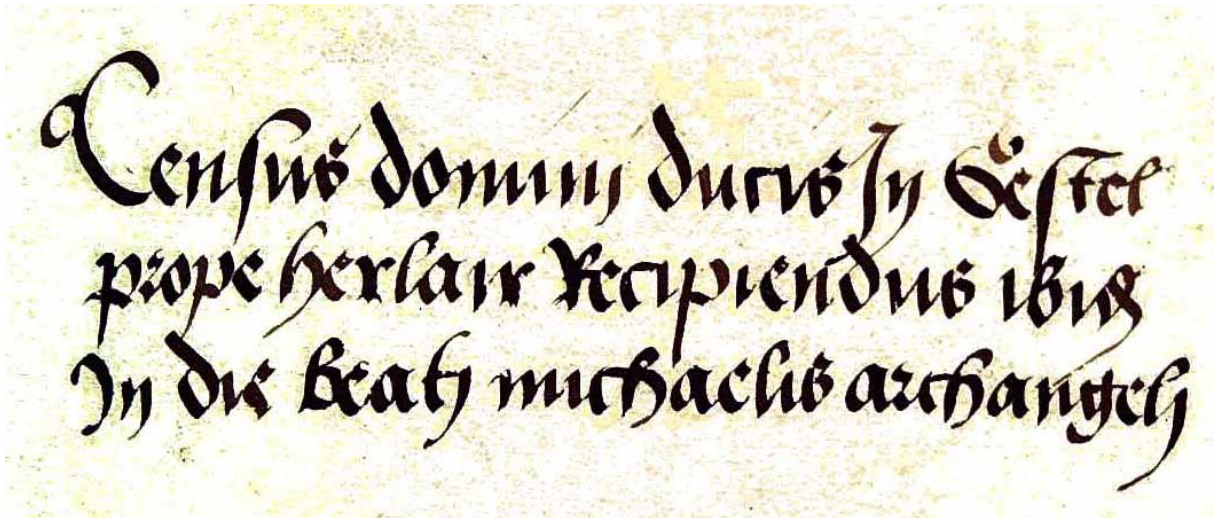 Census domini ducis In Gestel
prope herlair Recipiendus ibid
In die beati michaelis archangeli